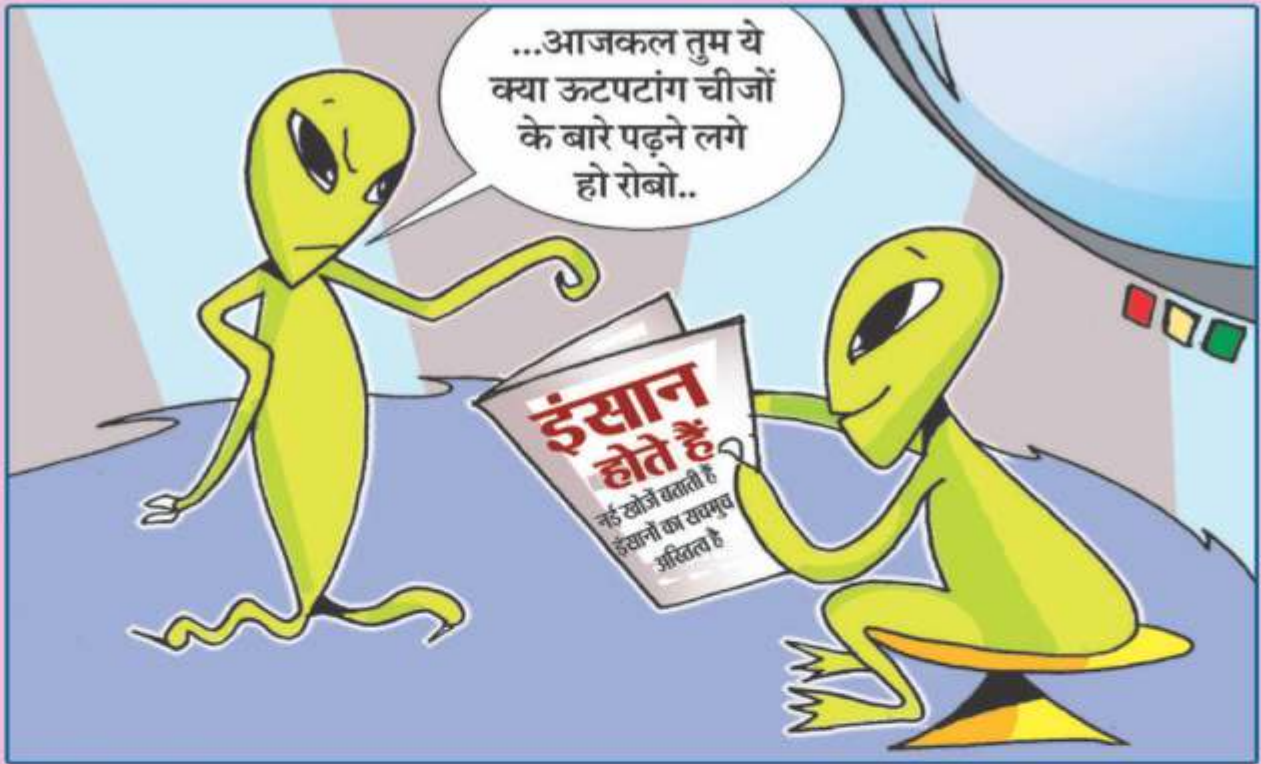 ...आजकल तुम ये
क्या ऊटपटांग चीजों
के बारे पढ़ने लगे
हो रोबो..
इंसान
होते हैं
नई खोजें बताती है
इंसानों का सचमुच
अस्तित्व है